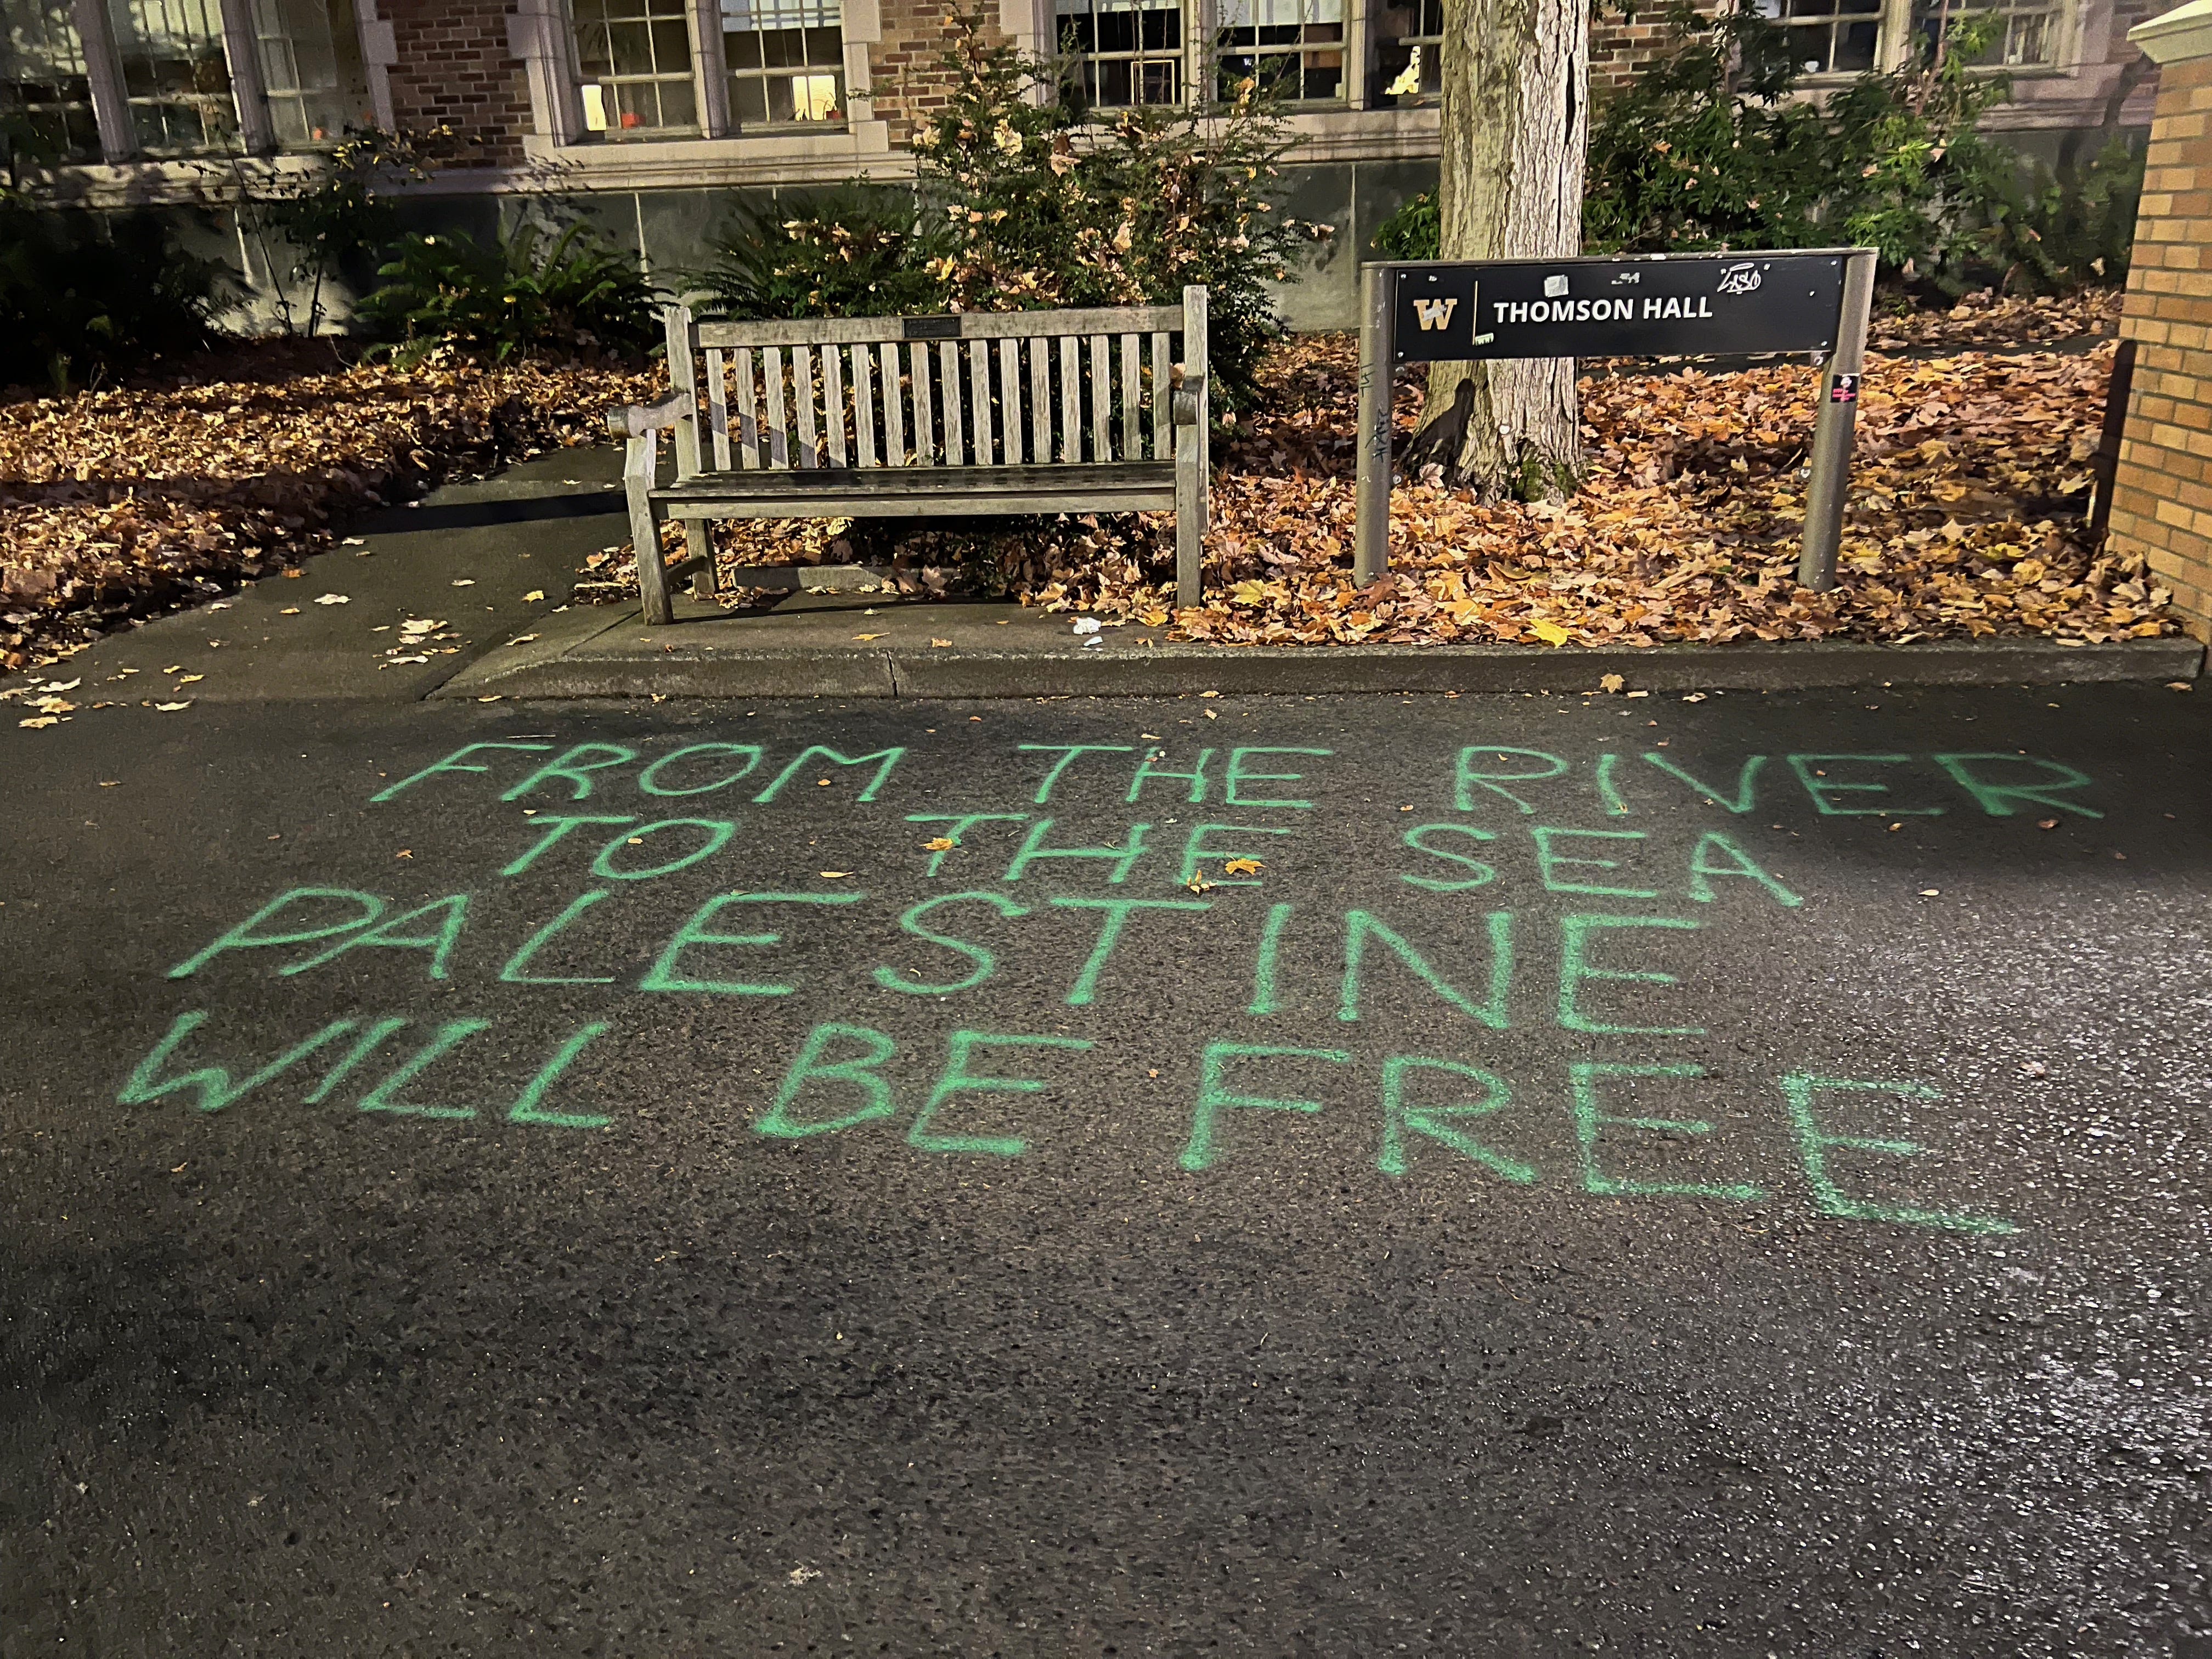 W THOMSON HALL
FROM THE RIVER
TO THE SEA
PALESTINE
WILL BE FREE